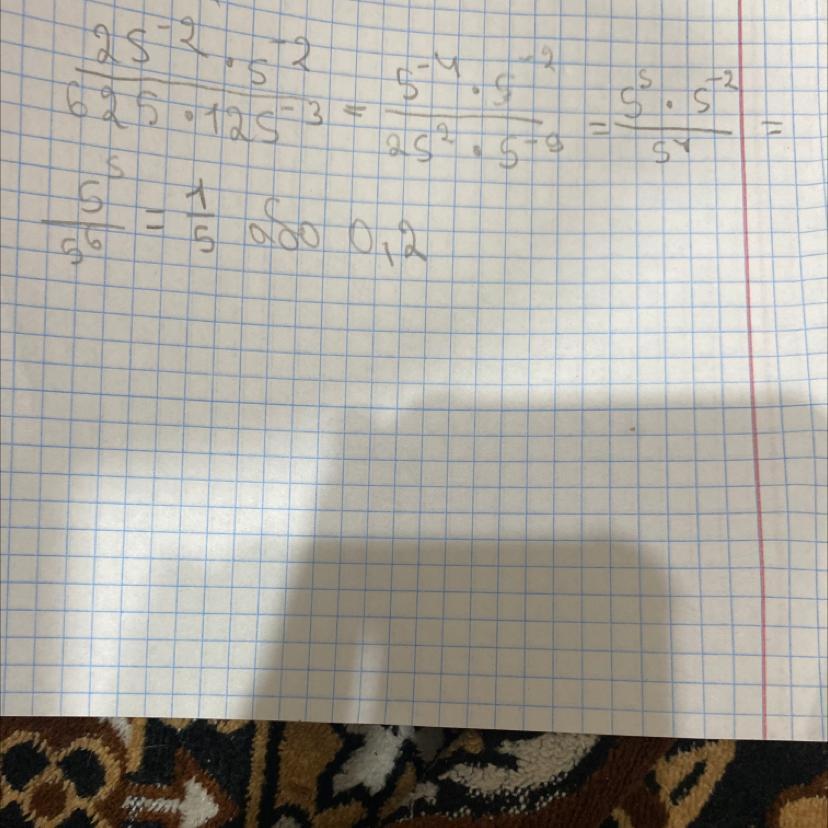 25⁻² · 5⁻² / 625 · 125⁻³ = 5⁻⁴ · 5⁻² / 25² · 5⁻⁹ = 5⁵ · 5⁻² / 5⁴ =
5⁵ / 5⁶ = 1/5 або 0,2